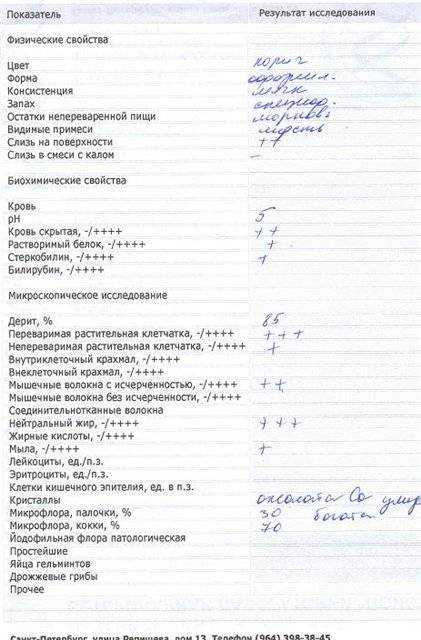 Показатель Результат исследования
Физические свойства
Цвет корич
Форма оформл.
Консистенция мягк
Запах
Остатки непереваренной пищи морковь
Видимые примеси шерсть
Слизь на поверхности ++
Слизь в смеси с калом –
Биохимические свойства
Кровь
pH 5
Кровь скрытая, -/++++ ++
Растворимый белок, -/++++ +
Стеркобилин, -/++++ +
Билирубин, -/++++
Микроскопическое исследование
Дерит, % 85
Переваримая растительная клетчатка, -/++++ +++
Непереваримая растительная клетчатка, -/++++ +
Внутриклеточный крахмал, -/++++
Внеклеточный крахмал, -/++++
Мышечные волокна с исчерченностью, -/++++ ++
Мышечные волокна без исчерченности, -/++++
Соединительнотканные волокна
Нейтральный жир, -/++++ +++
Жирные кислоты, -/++++
Мыла, -/++++ +
Лейкоциты, ед./п.з.
Эритроциты, ед./п.з.
Клетки кишечного эпителия, ед. в п.з.
Кристаллы оксалаты Ca умер
Микрофлора, палочки, % 30 богатая
Микрофлора, кокки, % 70
Йодофильная флора патологическая
Простейшие
Яйца гельминтов
Дрожжевые грибы
Прочее
Санкт-Петербург, улица Репищева, дом 13. Телефон (964) 398-38-45